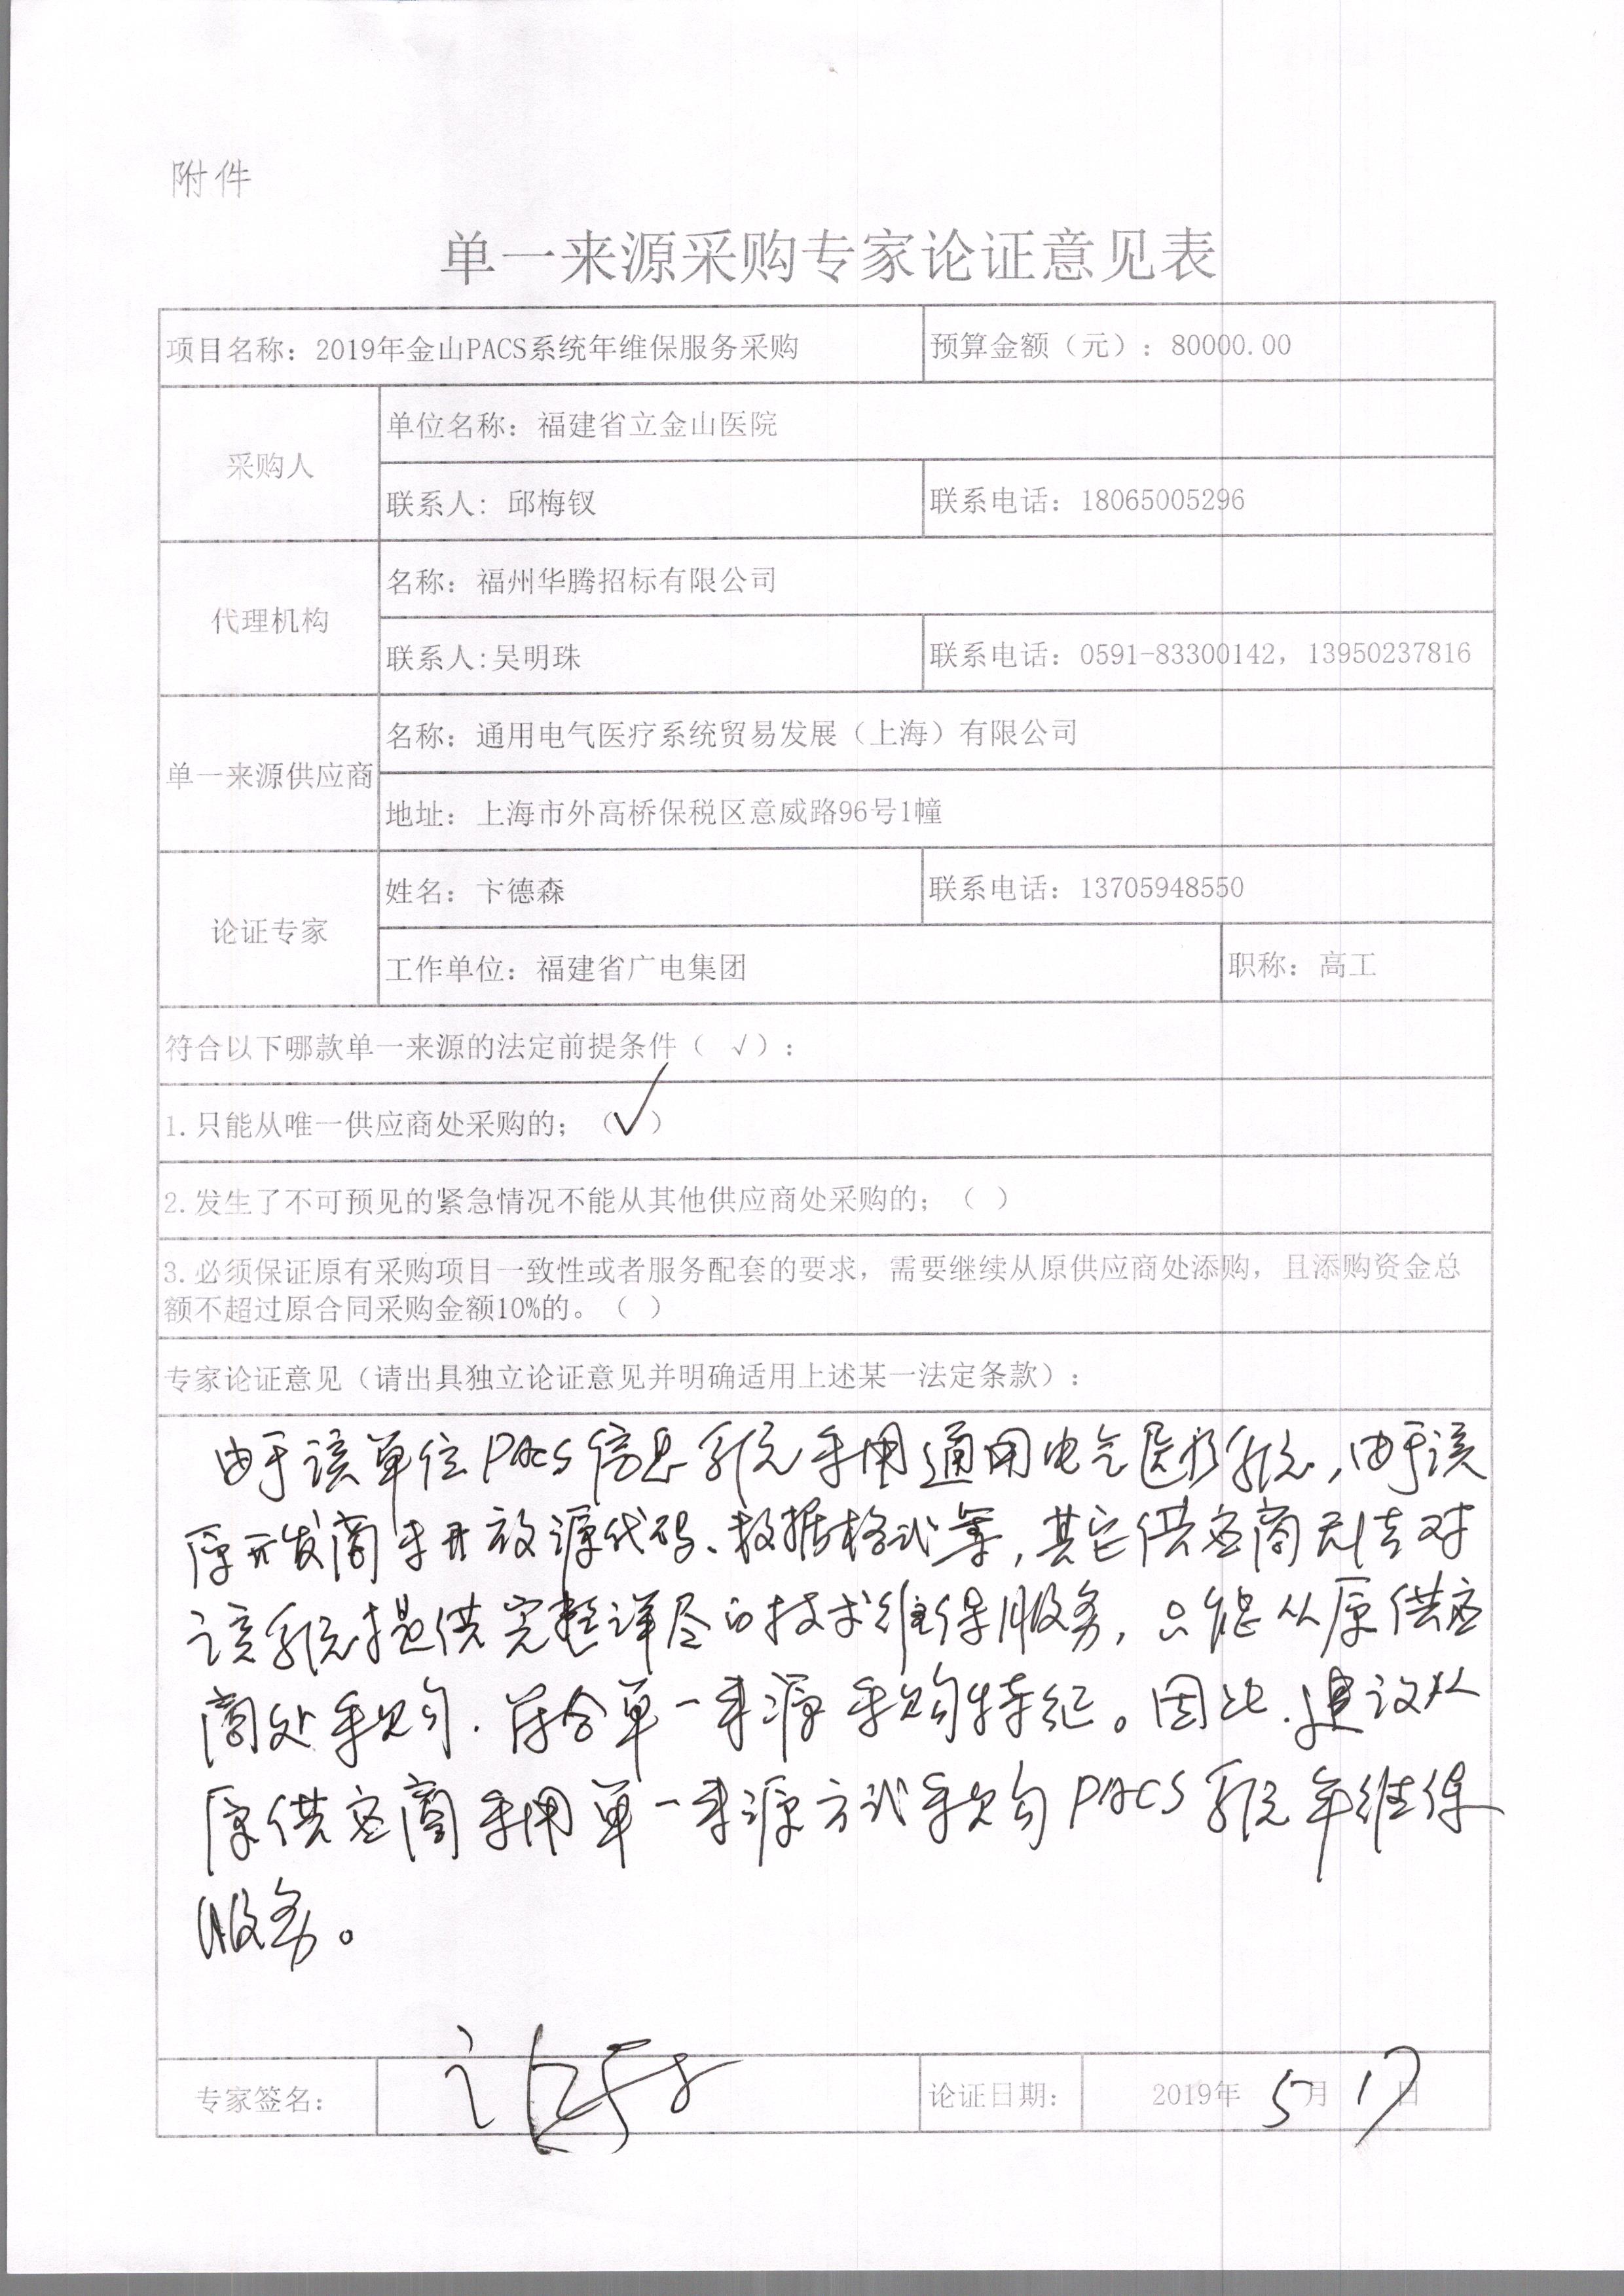 附件
单一来源采购专家论证意见表
项目名称：2019年金山PACS系统年维保服务采购 预算金额（元）：80000.00
采购人
单位名称：福建省立金山医院
联系人：邱梅钗 联系电话：18065005296
代理机构
名称：福州华腾招标有限公司
联系人:吴明珠 联系电话：0591-83300142，13950237816
单一来源供应商
名称：通用电气医疗系统贸易发展（上海）有限公司
地址：上海市外高桥保税区意威路96号1幢
论证专家
姓名：卞德森 联系电话：13705948550
工作单位：福建省广电集团 职称：高工
符合以下哪款单一来源的法定前提条件（ √）：
1.只能从唯一供应商处采购的；（√）
2.发生了不可预见的紧急情况不能从其他供应商处采购的；（ ）
3.必须保证原有采购项目一致性或者服务配套的要求，需要继续从原供应商处添购，且添购资金总
额不超过原合同采购金额10%的。（ ）
专家论证意见（请出具独立论证意见并明确适用上述某一法定条款）：
由于该单位PACS信息系统采用通用电气医疗系统，由于该
原开发商未开放源代码、数据格式等，其它供应商无法对
该系统提供完整详尽的技术维保服务，只能从原供应
商处采购．符合单一来源采购特征。因此．建议从
原供应商采用单一来源方式采购PACS系统年维保
服务。
专家签名： 论证日期： 2019年 5月 17日